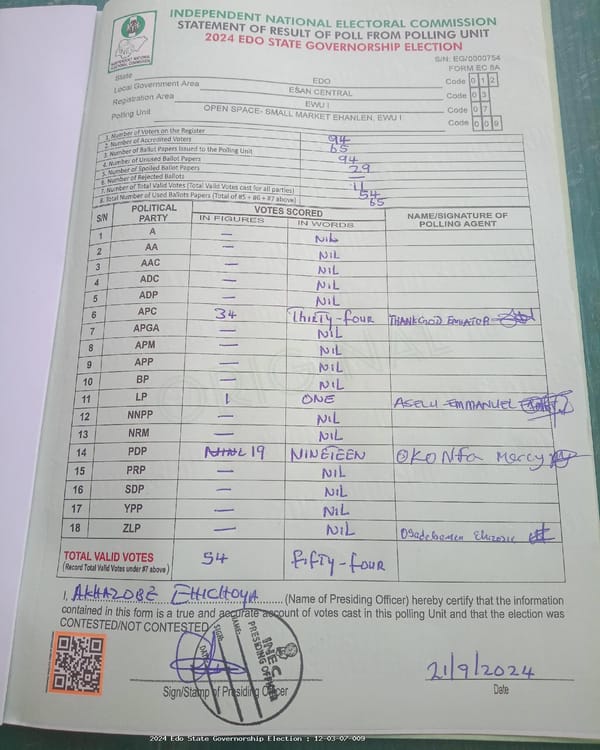 INDEPENDENT NATIONAL ELECTORAL COMMISSION
STATEMENT OF RESULT OF POLL FROM POLLING UNIT
2024 EDO STATE GOVERNORSHIP ELECTION
S/N: EG/0000754
FORM EC 8A
State EDO Code 0 1 2
Local Government Area ESAN CENTRAL Code 0 3
Registration Area EWU I Code 0 7
Polling Unit OPEN SPACE- SMALL MARKET EHANLEN, EWU I Code 0 0 9
1. Number of Voters on the Register 94
2. Number of Accredited Voters 65
3. Number of Ballot Papers Issued to the Polling Unit 94
4. Number of Unused Ballot Papers 29
5. Number of Spoiled Ballot Papers —
6. Number of Rejected Ballots 11
7. Number of Total Valid Votes (Total Valid Votes cast for all parties) 54
8. Total Number of Used Ballots Papers (Total of #5 + #6 + #7 above) 65
S/N POLITICAL PARTY VOTES SCORED NAME/SIGNATURE OF POLLING AGENT
IN FIGURES IN WORDS
1 A — NIL
2 AA — NIL
3 AAC — NIL
4 ADC — NIL
5 ADP — NIL
6 APC 34 THIRTY-FOUR THANKGOD
7 APGA — NIL
8 APM — NIL
9 APP — NIL
10 BP — NIL
11 LP 1 ONE EMMANUEL
12 NNPP — NIL
13 NRM — NIL
14 PDP 19 NINETEEN Mercy
15 PRP — NIL
16 SDP — NIL
17 YPP — NIL
18 ZLP — NIL
TOTAL VALID VOTES 54 FIFTY-FOUR
(Record Total Valid Votes under #7 above)
I, AKHAZOBE EHICHOYA (Name of Presiding Officer) hereby certify that the information
contained in this form is a true and accurate account of votes cast in this polling Unit and that the election was
CONTESTED/NOT CONTESTED
INEC
PRESIDING OFFICER
NAME:
SIGN:
DATE
21/9/2024
Sign/Stamp of Presiding Officer Date
2024 Edo State Governorship Election : 12-03-07-009